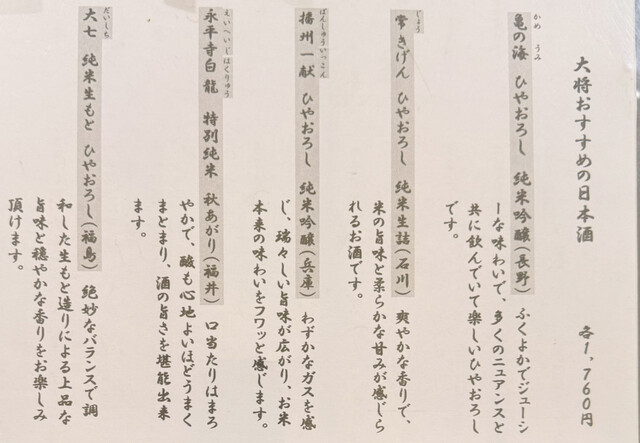 大将おすすめの日本酒 各1,760円
かめ うみ
亀の海 ひやおろし 純米吟醸(長野) ふくよかでジューシ
ーな味わいで、多くのニュアンスと
共に飲んでいて楽しいひやおろし
です。
じょう
常きげん ひやおろし 純米生詰(石川) 爽やかな香りで、
米の旨味と柔らかな甘みが感じら
れるお酒です。
ばんしゅういっこん
播州一献 ひやおろし 純米吟醸(兵庫) わずかなガスを感
じ、瑞々しい旨味が広がり、お米
本来の味わいをフワッと感じます。
えいへいじはくりゅう
永平寺白龍 特別純米 秋あがり(福井) 口当たりはまろ
やかで、酸も心地よいほどうまく
まとまり、酒の旨さを堪能出来
ます。
だいしち
大七 純米生もと ひやおろし(福島) 絶妙なバランスで調
和した生もと造りによる上品な
旨味と穏やかな香りをお楽しみ
頂けます。